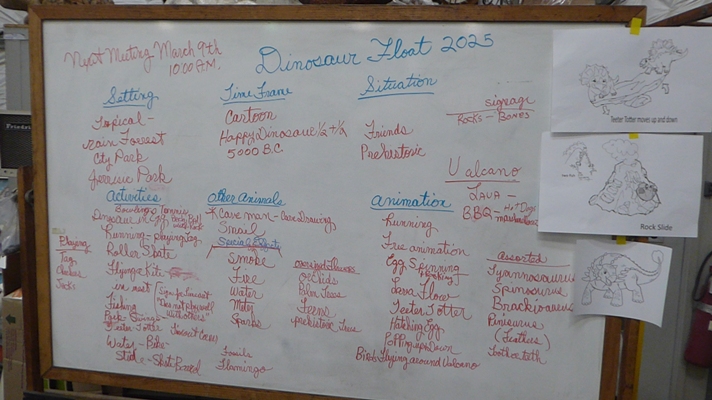 Next Meeting March 9th
10:00 A.M.
Dinosaur Float 2025
Setting
Tropical -
rain Forrest
City Park
Jurrasic Park
Time Frame
Cartoon
Happy Dinosaur 1/2 + 1/2
5000 B.C.
Situation
Friends
Prehistoric
Signage
Rocks - Bones
Valcano
LAVA -
BBQ - Hot Dogs
marshmallows
Activities
Bowling - Tennis
Dinosaur in Egg
Running - playing tag
Roller Skate
Flying Kite
in nest
Fishing
Swings
Teeter Totter
Water - Bike
Slide - Skate Board
Playing
Tag
Jacks
Sign for Linecoat
"Does not play well
with others"
Other Animals
Cave man - Cave Drawing
Snail
Special Effects
Smoke
Fire
Water
Meteor
Sparks
Fossils
Flamingo
oversized flowers
orchids
Palm Trees
Ferns
prehistoric Trees
Animation
Running
Tree animation
Egg Spinning
Lava Flow
Teeter Totter
Hatching Egg
Popping up & Down
Birds Flying around Volcano
Assorted
Tyrannosaurus
Spinosaurus
Brachiosaurus
(feathers)
Toothoteeth
Teeter Totter moves up and down
Rock Slide